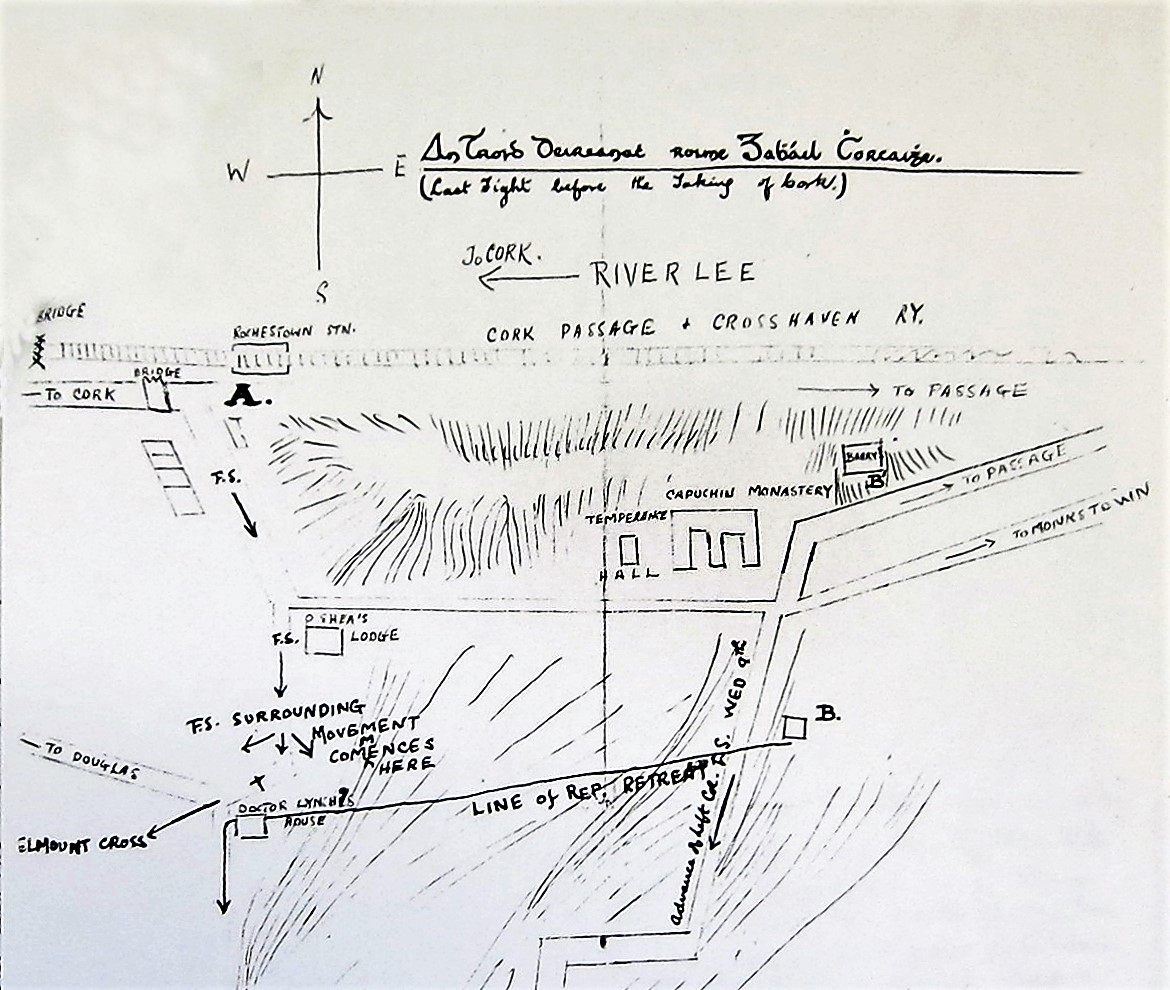 N
W E
S
An Troid Deireanac roime Gaḃáil Ċorcaiġe.
(Last Fight before the Taking of Cork.)
To CORK.
RIVER LEE
BRIDGE
ROCHESTOWN STN.
CORK PASSAGE & CROSSHAVEN RY.
BRIDGE
TO CORK
A.
TO PASSAGE
F.S.
BARRY
B
CAPUCHIN MONASTERY
TO PASSAGE
TEMPERANCE
HALL
TO MONKSTOWN
O SHEA'S
LODGE
F.S.
F.S. SURROUNDING
MOVEMENT
COMENCES
HERE
B.
TO DOUGLAS
x
DOCTOR LYNCH'S
HOUSE
?
LINE OF REP. RETREAT
Advance of left Col. F.S. WED 9TH
ELMOUNT CROSS